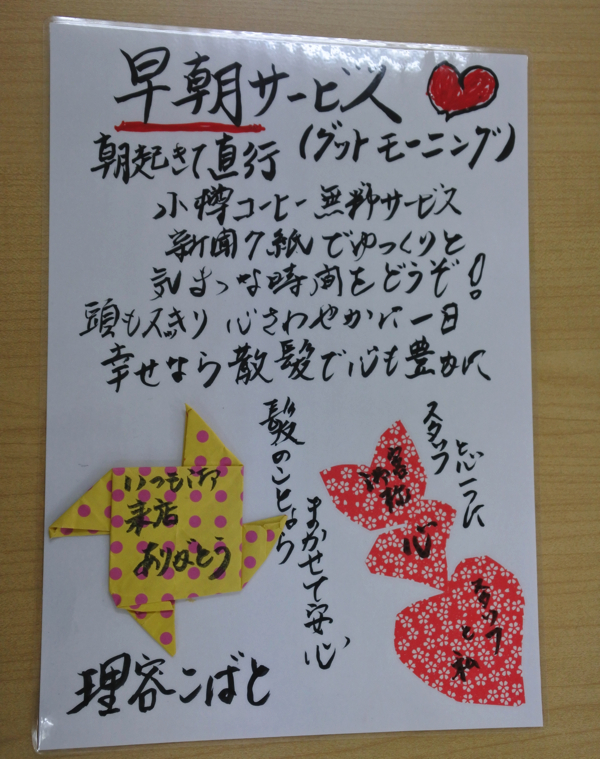 早朝サービス
朝起きて直行(グットモーニング)
小樽コーヒー無料サービス
新聞7紙でゆっくりと
気まゝな時間をどうぞ!
頭もスッキリ 心さわやかに一日
幸せなら散髪で心も豊かに
髪のことなら
まかせて安心
スタッフ
と心一つに
いつも御
来店
ありがとう
お客様
心
スタッフ
と私
理容こばと